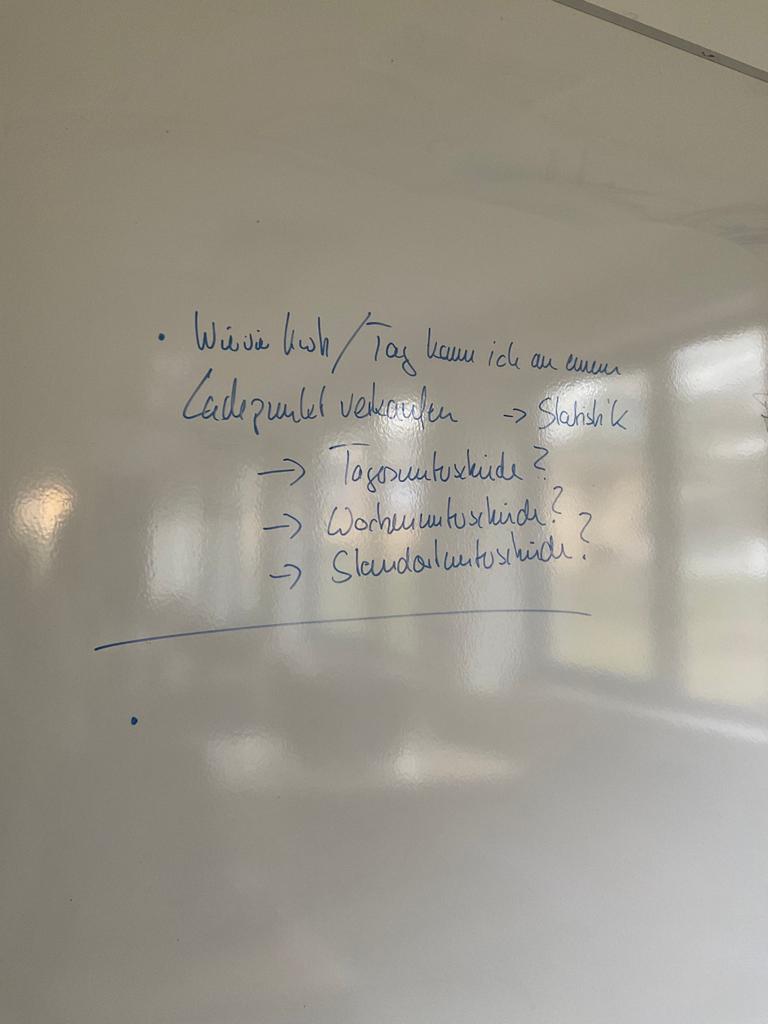 • Wievie kwh/Tag kann ich an einem
Ladepunkt verkaufen → Statistik
→ Tagesunterschiede?
→ Wochenunterschiede?
→ Standortunterschiede?
•